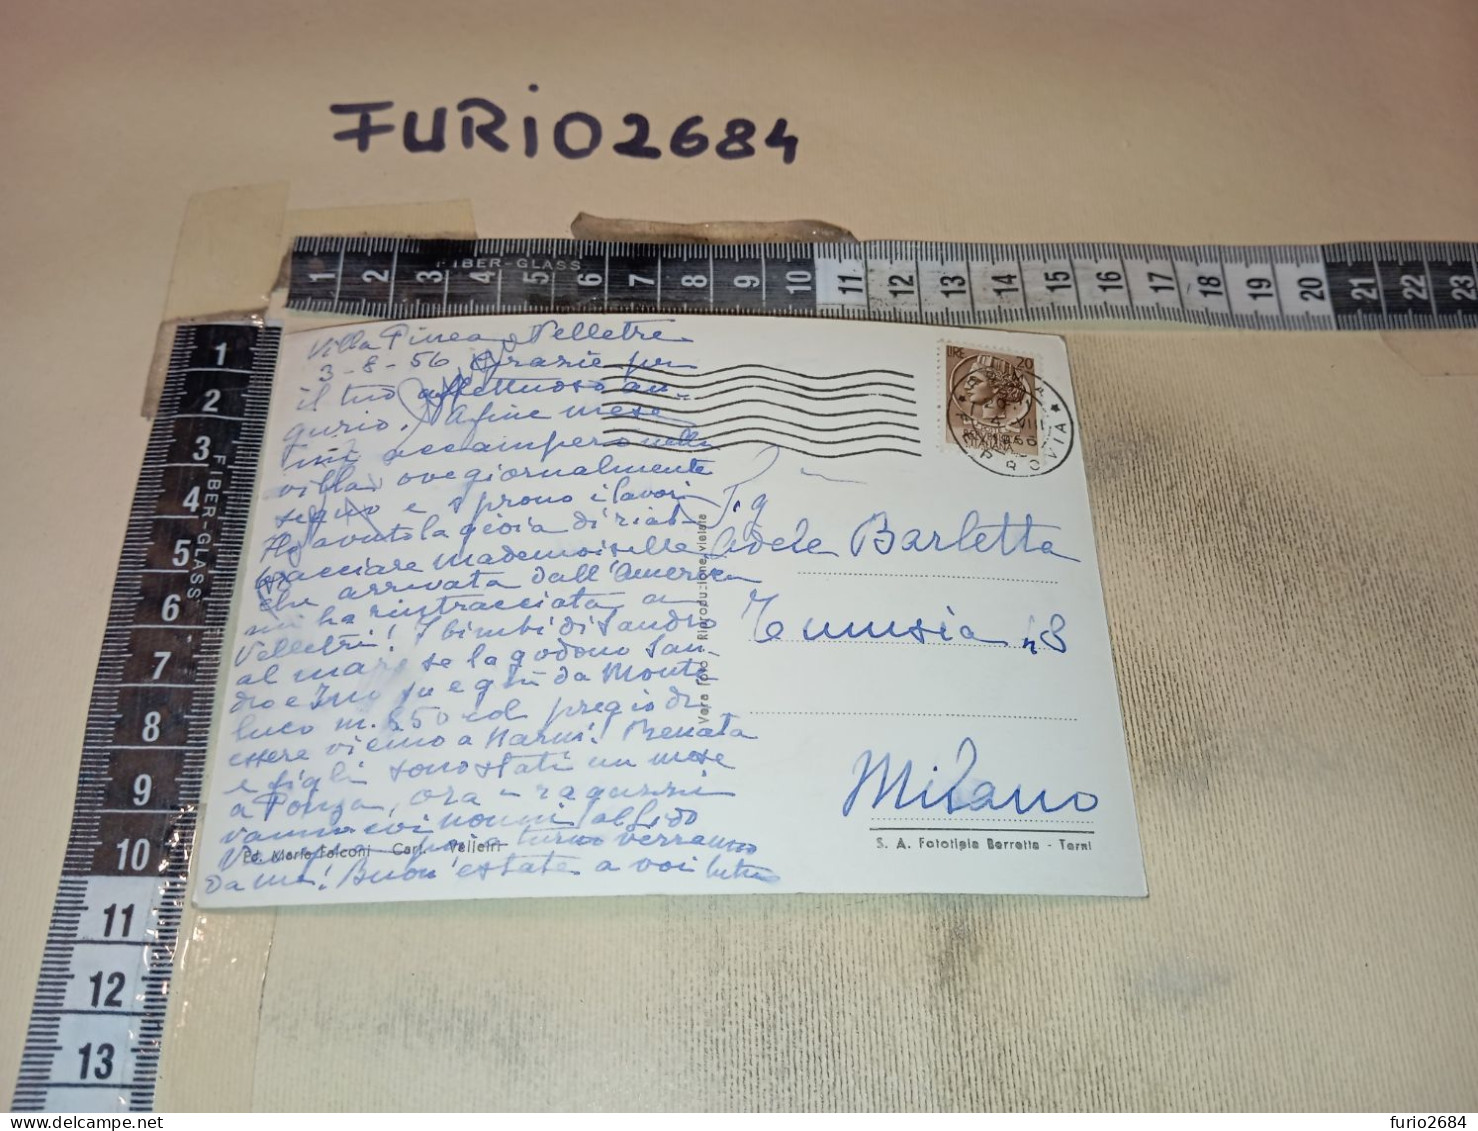 FURIO2684
FIBER-GLASS
1 2 3 4 5 6 7 8 9 10 11 12 13 14 15 16 17 18 19 20 21 22 23
FIBER-GLASS
1
2
3
4
5
6
7
8
9
10
11
12
13
Villa Pinea Velletri
3-8-56 Grazie per
il tuo affettuoso au-
gurio. A fine mese
mi accampero nella
villa ove giornalmente
seguo e sprono i lavori
Ho avuto la gioia di riab-
bracciare Mademoiselle
che arrivata dall'America
mi ha rintracciata a
Velletri! I bimbi di Sandro
al mare se la godono San-
dro e su e giù da Monte
luco m. 850 col pregio di
essere vicino a Narni! Renata
e figli sono stati un mese
a Ponza, ora i ragazzi
vanno coi nonni al Lido
turno verranno
da me! Buon'estate a voi tutti
LIRE 20
FERROVIA
VIII
1956
Sig
Adele Barletta
Tunisia 48
Milano
Vera Foto - Riproduzione vietata
Ed. Mario Falconi Cart. Velletri
S. A. Fototipia Berretta - Terni
furio2684